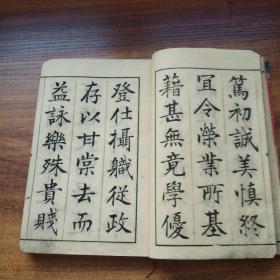 篤初誠美慎終
宜令榮業所基
藉甚無竟學優
登仕攝職從政
存以甘棠去而
益詠樂殊貴賤